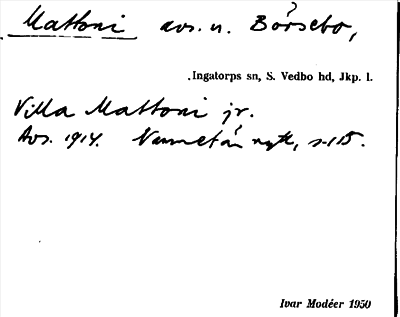 Mattoni avs. u. Börsebo,
Ingatorps sn, S. Vedbo hd, Jkp. l.
Villa Mattoni jr.
Avs. 1914. nytt, s. 115.
Ivar Modéer 1950